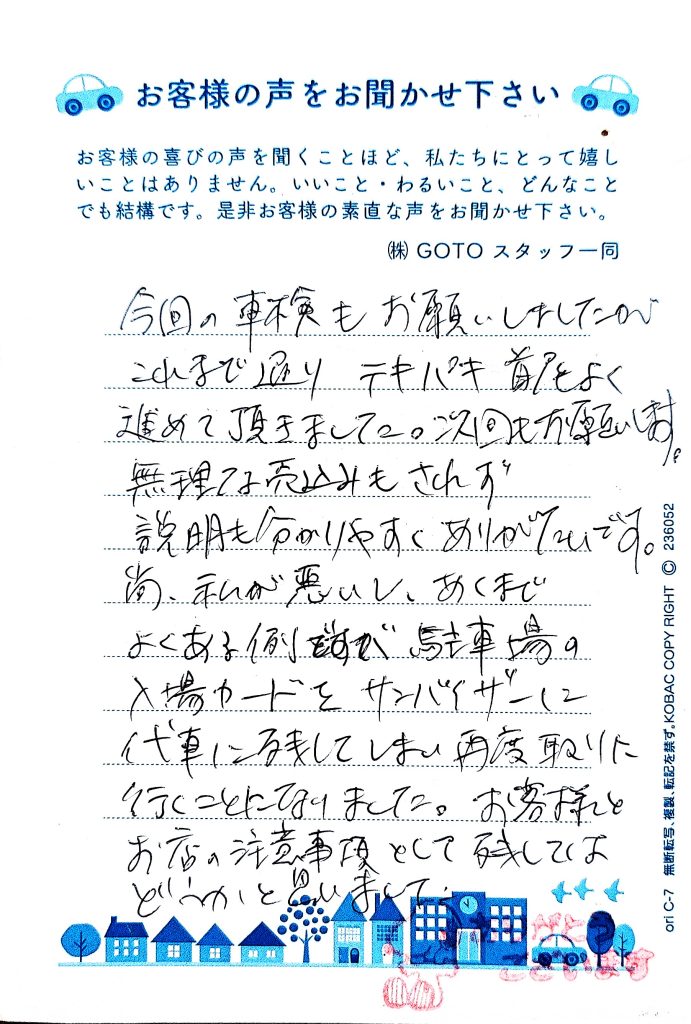 お客様の声をお聞かせ下さい
お客様の喜びの声を聞くことほど、私たちにとって嬉し
いことはありません。いいこと・わるいこと、どんなこと
でも結構です。是非お客様の素直な声をお聞かせ下さい。
㈱ GOTO スタッフ一同
今回の車検もお願いしましたが
これまで通り テキパキ 首尾よく
進めて頂きました。次回もお願いします。
無理な売込みもされず
説明も分かりやすくありがたいです。
尚、私が悪いし、あくまで
よくある例ですが 駐車場の
入場カードを サンバイザーに
代車に残してしまい 再度取りに
行くことになりました。お客様と
お店の注意事項として残しては
どうかと思いまして、
ございます
ori C-7 無断転写、複製、転記を禁ず。KOBAC COPY RIGHT Ⓒ 236052